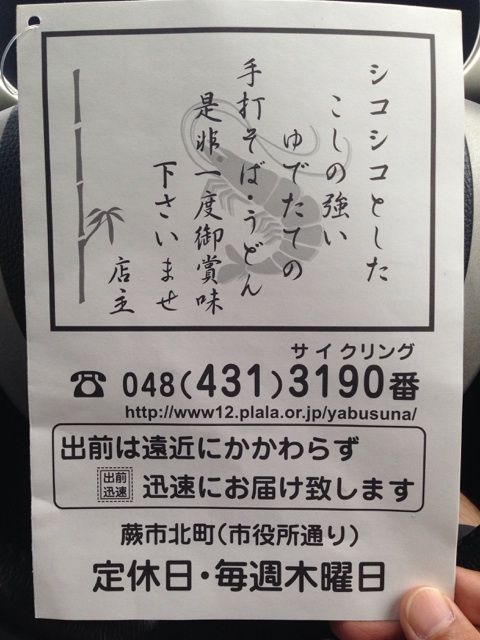 シコシコとした
こしの強い
ゆでたての
手打そば・うどん
是非一度御賞味
下さいませ
店主
サイクリング
☎ 048(431)3190番
http://www12.plala.or.jp/yabusuna/
出前は遠近にかかわらず
出前迅速
迅速にお届け致します
蕨市北町(市役所通り)
定休日・毎週木曜日